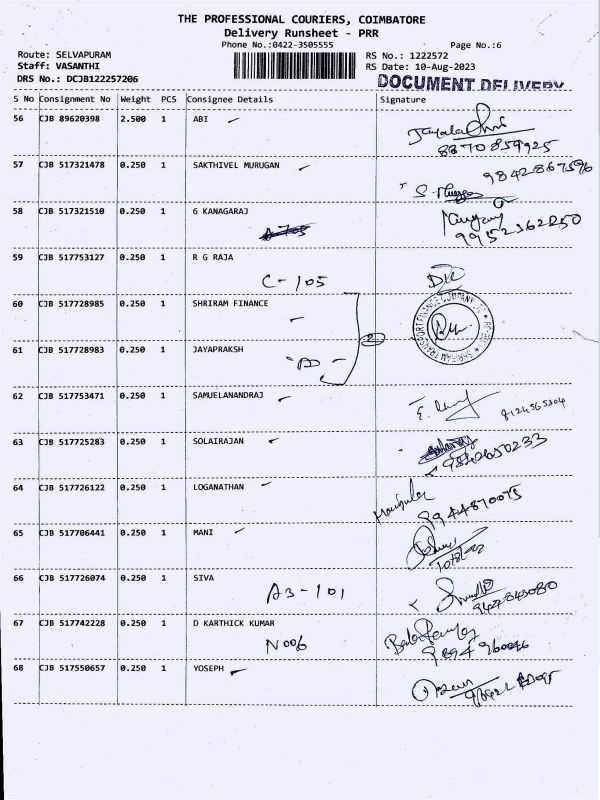 THE PROFESSIONAL COURIERS, COIMBATORE
Delivery Runsheet - PRR
Phone No.:0422-3505555
Page No.:6
Route: SELVAPURAM
RS No.: 1222572
Staff: VASANTHI
RS Date: 10-Aug-2023
DRS No.: DCJB122257206
DOCUMENT DELIVERY
S No Consignment No Weight PCS Consignee Details Signature
56 CJB 89620398 2.500 1 ABI
8870859925
57 CJB 517321478 0.250 1 SAKTHIVEL MURUGAN
9842867596
58 CJB 517321510 0.250 1 G KANAGARAJ
9952362250
59 CJB 517753127 0.250 1 R G RAJA
C-105
60 CJB 517728985 0.250 1 SHRIRAM FINANCE
2
61 CJB 517728983 0.250 1 JAYAPRAKSH
62 CJB 517753471 0.250 1 SAMUELANANDRAJ
63 CJB 517725283 0.250 1 SOLAIRAJAN
9842650233
64 CJB 517726122 0.250 1 LOGANATHAN
9944870075
65 CJB 517706441 0.250 1 MANI
66 CJB 517726074 0.250 1 SIVA
A3-101
67 CJB 517742228 0.250 1 D KARTHICK KUMAR
N006
68 CJB 517550657 0.250 1 YOSEPH